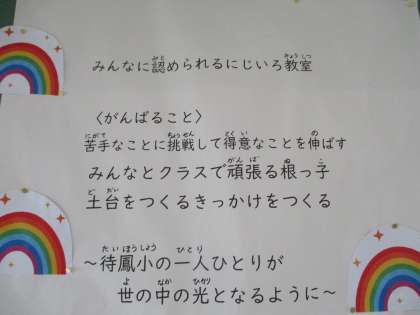 みんなに認められるにじいろ教室
〈がんばること〉
苦手なことに挑戦して得意なことを伸ばす
みんなとクラスで頑張る根っ子
土台をつくるきっかけをつくる
～待鳳小の一人ひとりが
世の中の光となるように～